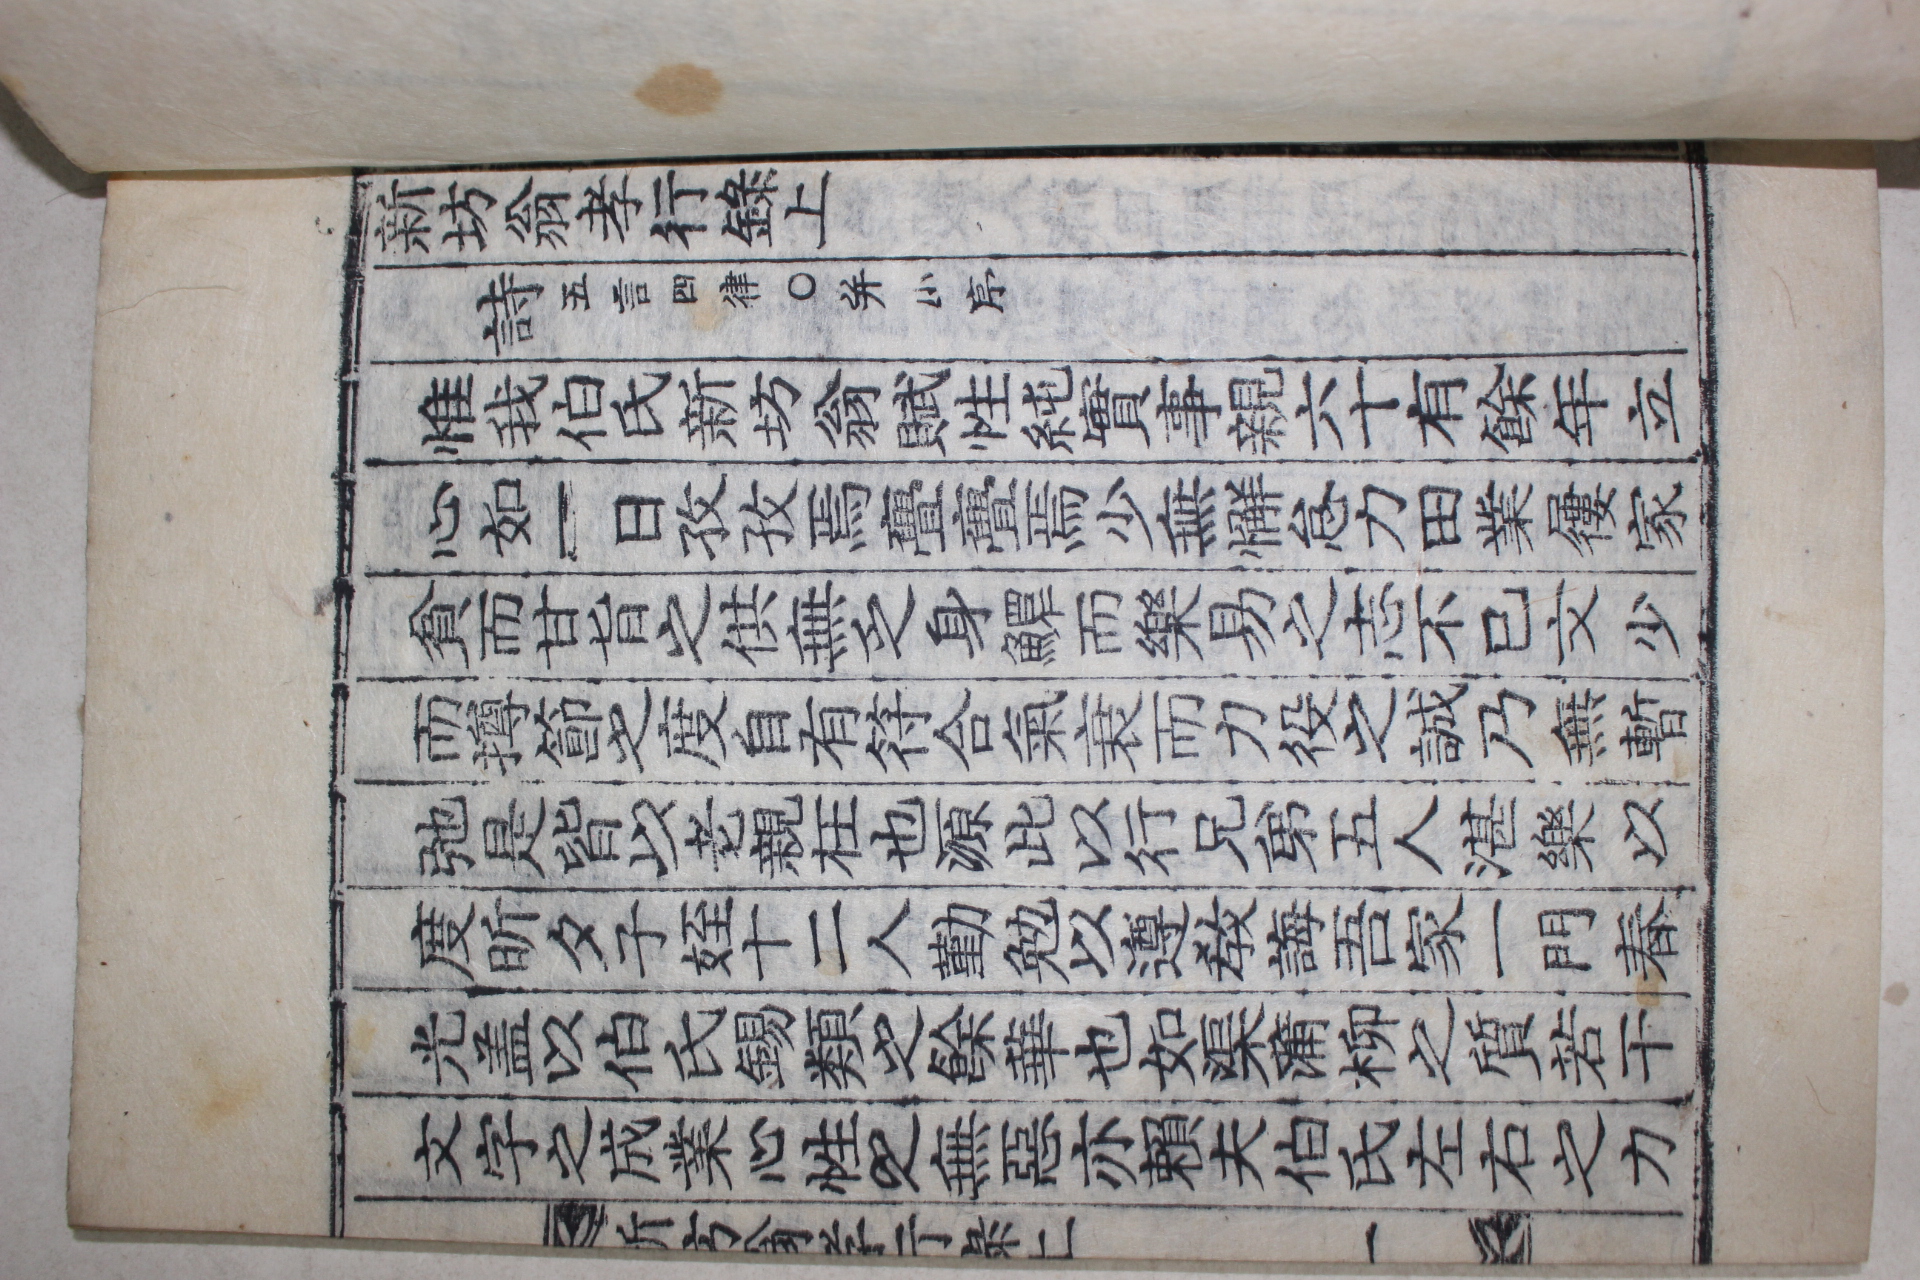 新坊翁孝行錄上
詩 五言四律○并小序
惟我伯氏新坊翁賦性純實事親六十有餘年立
心如一日孜孜焉亹亹焉少無懈怠力田業屢家
貧而甘旨之供無乏身鰥而樂易之志不已文少
而撙節之度自有符合氣衰而力役之誠乃無暫
弛是皆以老親在也源此以行兄弟五人湛樂以
度昕夕子姪十二人勤勉以遵教誨吾家一門春
光盖以伯氏錫類之餘華也如渠蒲柳之質若干
文字之成業心性之無惡亦賴夫伯氏左右之力
新坊翁孝行錄上 一